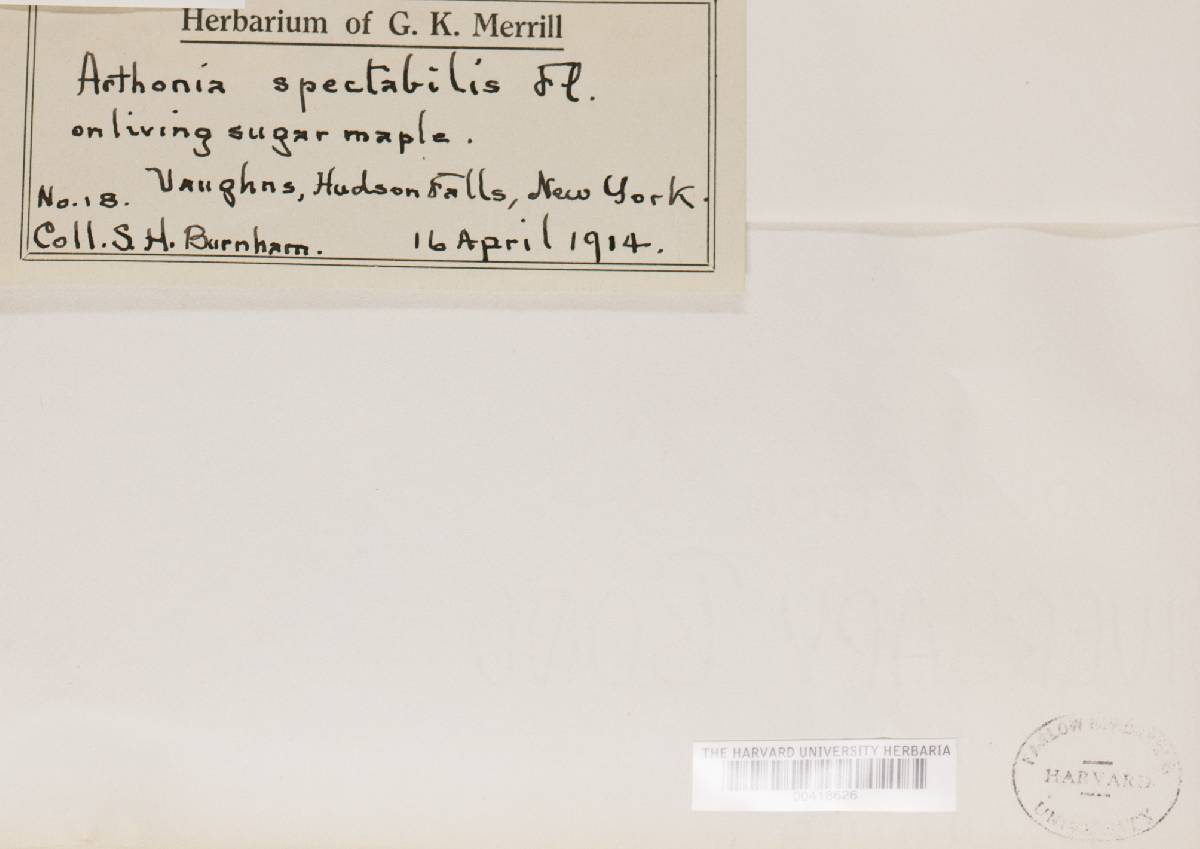 Herbarium of G. K. Merrill
Arthonia spectabilis Fl.
on living sugar maple.
No. 18. Vaughns, Hudson Falls, New York.
Coll. S. H. Burnham. 16 April 1914.
THE HARVARD UNIVERSITY HERBARIA
00418626
FARLOW
HARVARD
UNIVERSITY